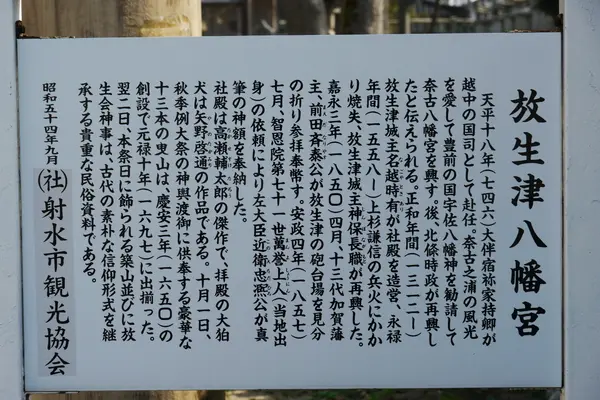 放生津八幡宮
天平十八年(七四六)大伴宿祢家持卿が
越中の国司として赴任。奈古之浦の風光
を愛して豊前の国宇佐八幡神を勧請して
奈古八幡宮を興す。後、北條時政が再興し
たと伝えられる。正和年間(一三一二―)
放生津城主名越時有が社殿を造営、永禄
年間(一五五八―)上杉謙信の兵火にかか
り焼失、放生津城主神保長職が再興した。
嘉永三年(一八五〇)四月、十三代加賀藩
主、前田斉泰公が放生津の砲台場を見分
の折り参拝奉幣す。安政四年(一八五七)
七月、智恩院第七十一世萬誉上人(当地出
身)の依頼により左大臣近衛忠凞公が真
筆の神額を奉納した。
社殿は高瀬輔太郎の傑作で、拝殿の大狛
犬は矢野啓通の作品である。十月一日、
秋季例大祭の神輿渡御に供奉する豪華な
十三本の曳山は、慶安三年(一六五〇)の
創設で元禄十年(一六九七)に出揃った。
翌二日、本祭日に飾られる築山並びに放
生会神事は、古代の素朴な信仰形式を継
承する貴重な民俗資料である。
昭和五十四年九月
(社)射水市観光協会